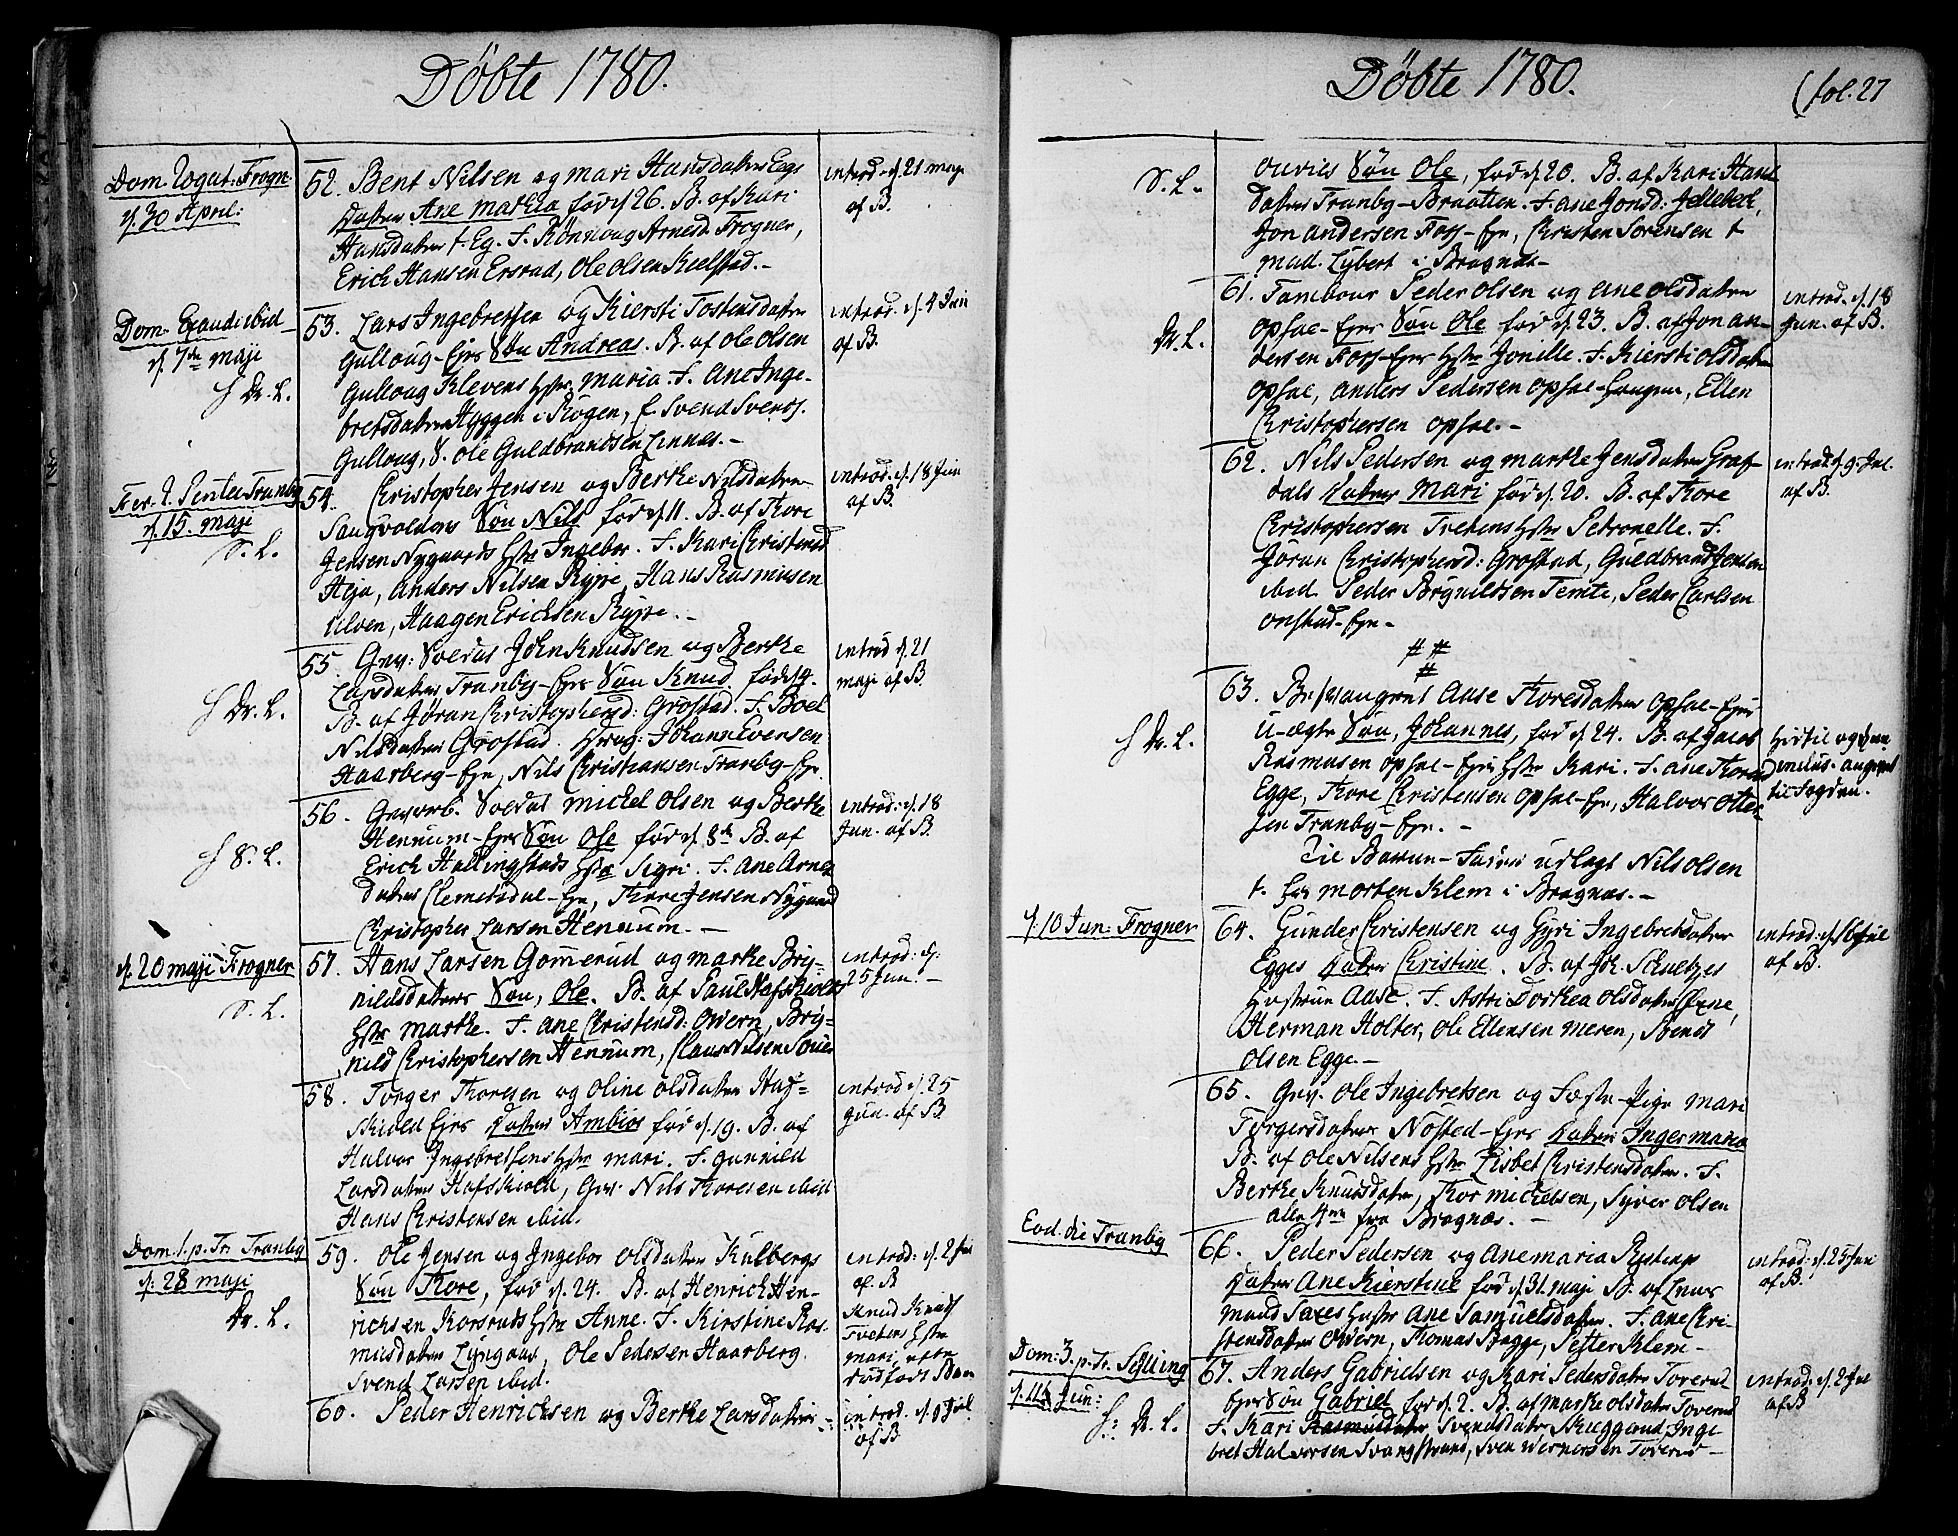 Döbte 1780.
Dom. Rogat: Frogn.
d. 30 April:
52. Bent Nilsen og mari Hansdatters Eegs
Datter Ane martha fød d. 26. B. af Kari
Hansdatter t. Eg. F. Rönnoug Arnesd. Frogner,
Erich Hansen Ersrud, Ole Olsen Kielstad.-
introd. d. 21 maji
af B.
Dom. Exaudi ibid
d. 7de maji
Dr. L.
53. Lars Ingebretsen og Kiersti Tostensdatter
Gulloug-Ejes Søn Andreas. B. af Ole Olsen
Gulloug Klevens hstr. maria. F. Ane Inge-
bretsdatter Hyggen i Røgen, Svend Svends.
Gulloug, S. Ole Guldbrandsen Linnes.-
introd. d. 4 Jun
af B.
Fer. 2. Pentec. Tranby
d. 15. maji
S. L.
54. Christopher Jensen og Berthe Nilsdatter
Søn Nils fød d. 11. B. af Thore
Jensen Nygaards hstr. Ingebor. F. Kari Christensd
Heja, Anders Nilsen Ryjre, Hans Rasmusen
Ulven, Haagen Ericksen Ryjre.-
introd. d. 18 Jun
af B.
Dr. L.
55. Gev: Soldat John Knudsen og Berthe
Larsdatter Tranby-Ejes Søn Knud fød d. 4.
B. af Jøran Christophersd: Grøstad. F. Boel
Nilsdatter Grøstad. Johan Evensen
Haarberg-Eje, Nils Christiansen Tranby-Eje.
introd d. 21
maji af B.
S. L.
56. Gevorb. Soldat mickel Olsen og Berthe
Hennum-Ejes Søn Ole fød d. 8de B. af
Erich Hallingstads hstr Sigri. F. Ane Arnes
datter Clemetsdal-Eje, Thore Jensen Nygaard
Christopher Larsen Hennum.-
introd: d. 18
Jun. af B.
d. 20 maji Frogner
S. L.
57. Hans Larsen Gomerud og marthe Bry-
nildsdatters Søn, Ole. B. af Paul Hafskiolds
hstr marthe. F. Ane Christensd: Overn, Bry-
nild Christophersen Hennum, Claus Nilsen
introd: d:
25 Jun.-
58. Torger Thoresen og Oline Olsdatter Haf-
skiold Ejes Datter Ambior fød d. 19. B. af
Halvor Ingebretsens hstr mari. F. Gunnild
Larsdatter Hafskiold, Gev. Nils Thoresen ibid
Hans Christensen ibid.
introd: d. 25
Jun. af B
Dom. 1. p. Tr. Tranby
d. 28 maji
Dr. L.
59. Ole Jensen og Ingebor Olsdatter Kulbergs
Søn Thore, fød d. 24. B. af Henrich Hen-
richsen Korsruds hstr Anne. F. Kirstine Ras-
musdatter Lyngaas, Ole Pedersen Haarberg.
Svend Larsen ibid.
introd: d. 2 Jul
af B
Knud Knuds
Tvetens hstr
mari, efter
dødfødt Barn
60. Peder Henrichsen og Berthe Larsdatter
introd. d. 9 Jul.
af B
Döbte 1780.
(fol. 27
S. L.
Søn Ole, fød d. 20. B. af Kari Hans
datter Tranby-Braatten. F. Ane Jonsd: Jellebek,
Jon Andersen Foss-Eje, Christen Sorensen t.
mad. Lybert i Bragnæs-
Dr. L.
61. Tambour Peder Olsen og Ane Olsdatter
Opsae-Ejes Søn Ole fød d. 23. B. af Jon An-
dersen Foss-Ejes hstr Jonille. F. Kiersti Olsdatter
Opsae, Anders Pedersen Opsae-Haugen, Ellen
Christophersen Opsae.-
introd. d. 18
Jun. af B.
62. Nils Pedersen og marthe Jensdatter Graf-
dals Datter Mari fød d. 20. B. af Thore
Christophersen Tvetens hstr Petronelle. F.
Jøran Christophersd: Grøstad, Guldbrand Jensen
ibid. Peder Brynildsen Temte, Peder Carlsen
Onstad-Eje-
introd. d. 9. Jul.
af B.
# #
#
Dr. L.
63. Besvangret Aase Thoresdatter Opsae-Ejes
U-ægte Søn, Johannes, fød d. 24. B. af Jacob
Rasmusen Opsae-Ejes hstr Kari. F. Ane Thoresd
Egge, Thore Christensen Opsae-Eje, Halvor Otter-
sen Tranby-Eje.-
Til Barne-Fader udlagt Nils Olsen
t. hos Morten Klem i Bragnæs.-
til Fogden.
d. 10 Jun: Frogner
64. Gunder Christensen og Gyri Ingebretsdatter
Egges Datter Christine. B. af Joh. Schultzes
hustrue Aase. F. Astri Dorthea Olsdatter
Herman Holter, Ole Ellensen meren, Bendt
Olsen Egge.-
introd: d. 16 Jul
af B.
65. Gev. Ole Ingebretsen og Fæste-Pige mari
Torgersdatter Nøsted-Ejes Datter Inger maria
B. af Ole Nilsens hstr Lisbet Christensdatter. F.
Berthe Knudsdatter, Thor mickelsen, Syver Olsen
alle 4re fra Bragnæs.-
Eod. die Tranby
66. Peder Pedersen og Anemaria
Datter Ane Kierstine fød d. 31. maji B. af
mand Saxes hustr Ane Samuelsdatter. F. Ane Chri-
stensdatter Overn, Thomas Bagge, Petter Klem-
introd: d. 25 Jun
af B.
Dom: 3. p. Tr. Sylling
d. 11te Jun:
Dr. L.
67. Anders Gabrielsen og Kari Pedersdatter Toverud
Ejes Søn Gabriel fød d. 2. B. af marthe Olsdatter Toverud
F. Kari Rasmusdatter Svendsdatter Skuggerud, Inge-
bret Halvorsen Svangstrand, Sven Wernersen Toverud-
introd: d. 2 Jul
af B